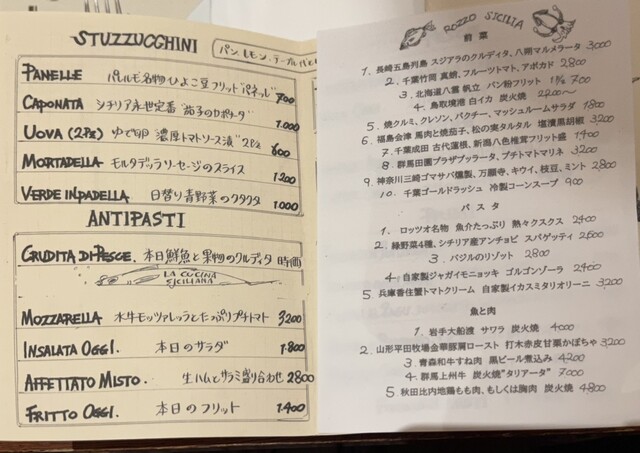 STUZZUCGHINI
パン、レモン、テーブル
PANELLE パレルモ名物 ひよこ豆フリット"パネッレ" 700
CAPONATA シチリア永世定番 "茄子のカポナータ" 1.000
UOVA (2Pz) ゆで卵 濃厚トマトソース漬 "2Pz 600
MORTADELLA モルタデッラソーセージのスライス 1200
VERDE INPADELLA 日替り青野菜のクタクタ 1.000
ANTIPASTI
CRUDITA DI PESCE. 本日鮮魚と果物のクルディタ 時価
LA CUCINA
SICILIANA
MOZZARELLA 水牛モッツァレッラとたっぷりプチトマト 3200
INSALATA OGGI. 本日のサラダ 1.800
AFFETTATO MISTO. 生ハムとサラミ盛り合わせ 2800
FRITTO OGGI. 本日のフリット 1.400
ROZZO SICILIA
前菜
1. 長崎五島列島 スジアラのクルディタ、八朔マルメラータ 3,000
2. 千葉竹岡 真鯒、フルーツトマト、アボカド 2800
3. 北海道八雲 帆立 パン粉フリット 1ヶ 700
4. 鳥取境港 白イカ 炭火焼 2200〜
5. 焼クルミ、クレソン、パクチー、マッシュルームサラダ 1800
6. 福島会津 馬肉と焼茄子、松の実タルタル 塩漬黒胡椒 3200
7. 千葉成田 古代蓮根、新潟八色椎茸フリット盛 1400
8. 群馬田園プラザブッラータ、プチトマトマリネ 3200
9. 神奈川三崎ゴマサバ燻製、万願寺、キウイ、枝豆、ミント 2800
10. 千葉ゴールドラッシュ 冷製コーンスープ 900
パスタ
1. ロッツオ名物 魚介たっぷり 熱々クスクス 2400
2. 緑野菜4種、シチリア産アンチョビ スパゲッティ 2600
3. バジルのリゾット 2800
4. 自家製ジャガイモニョッキ ゴルゴンゾーラ 2400
5. 兵庫香住蟹トマトクリーム 自家製イカスミタリオリーニ 3200
魚と肉
1. 岩手大船渡 サワラ 炭火焼 4000
2. 山形平田牧場金華豚肩ロースト 打木赤皮甘栗かぼちゃ 3200
3. 青森和牛すね肉 黒ビール煮込み 4200
4. 群馬上州牛 炭火焼"タリアータ" 7000
5. 秋田比内地鶏もも肉、もしくは胸肉 炭火焼 4,800